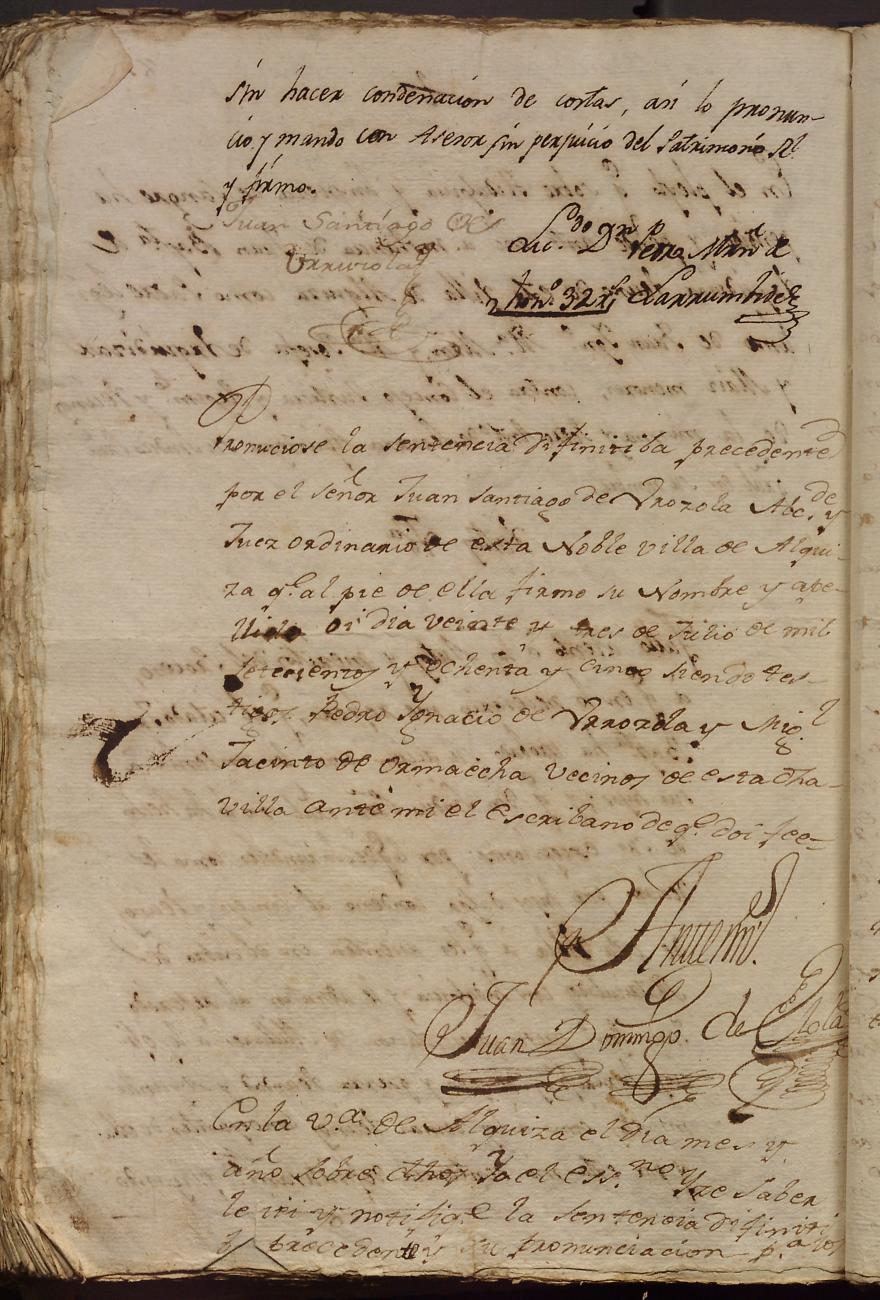 sin hacer condenacion de costas, asi lo pronun-
cio y mando con Asesor sin perjuicio del Patrimonio Rl.
y firmo.
Juan Santiago de
Urruzola
Lic.do Dn. Pedro Mrn. de
Larrumbide
hon.s 32 rs
Pronunciose la sentencia difinitiba precedente
por el señor Juan Santiago de Vrrozola Alc.de y
Juez ordinario de esta Noble villa de Alqui-
za q.e al pie de ella firmo su Nombre y ape-
llido oi dia veinte y tres de Julio de mil
setecientos y ochenta y cinco siendo tes-
tigos Pedro Ygnacio de Vrrozola y Mig.l
Jacinto de Ormaecha vecinos de esta dha
villa ante mi el escribano de q.e doi fee-
Antemi.
Juan Domingo de Olola
En la v.a de Alquiza el dia mes y
año sobre dhos Yo el ess.no Yze saber
lei y notifiqe la sentencia difiniti
b precedente y su pronunciacion p.a los